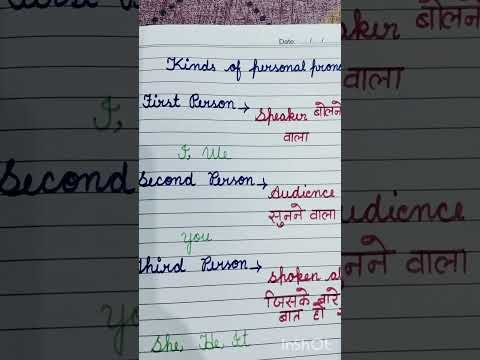 Date: / /
Kinds of personal
First Person → Speaker बोलने
वाला
I, We
Second Person → Audience
सुनने वाला
You
Third Person → Spoken
जिसके बारे
बात हो
She, He, It
InShOt